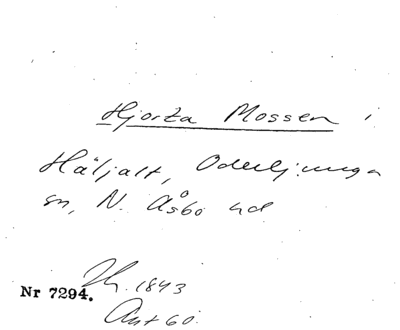 Hjorta Mossen i
Häljalt, Oderljunga
sn, N. Åsbo hd
Jh. 1843
Nr 7294.
Ant 60.